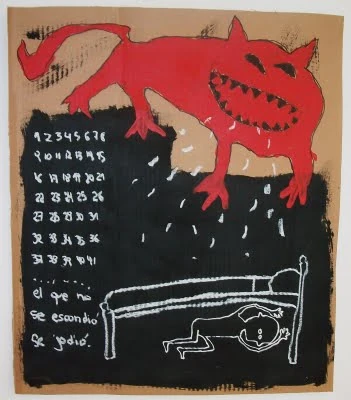 1 2 3 4 5 6 7 8
9 10 11 12 13 14 15
16 17 18 19 20 21
22 23 24 25 26
27 28 29 30 31
32 33 34 35 36
37 38 39 40 41
..........
el que no
se escondió
se jodió.